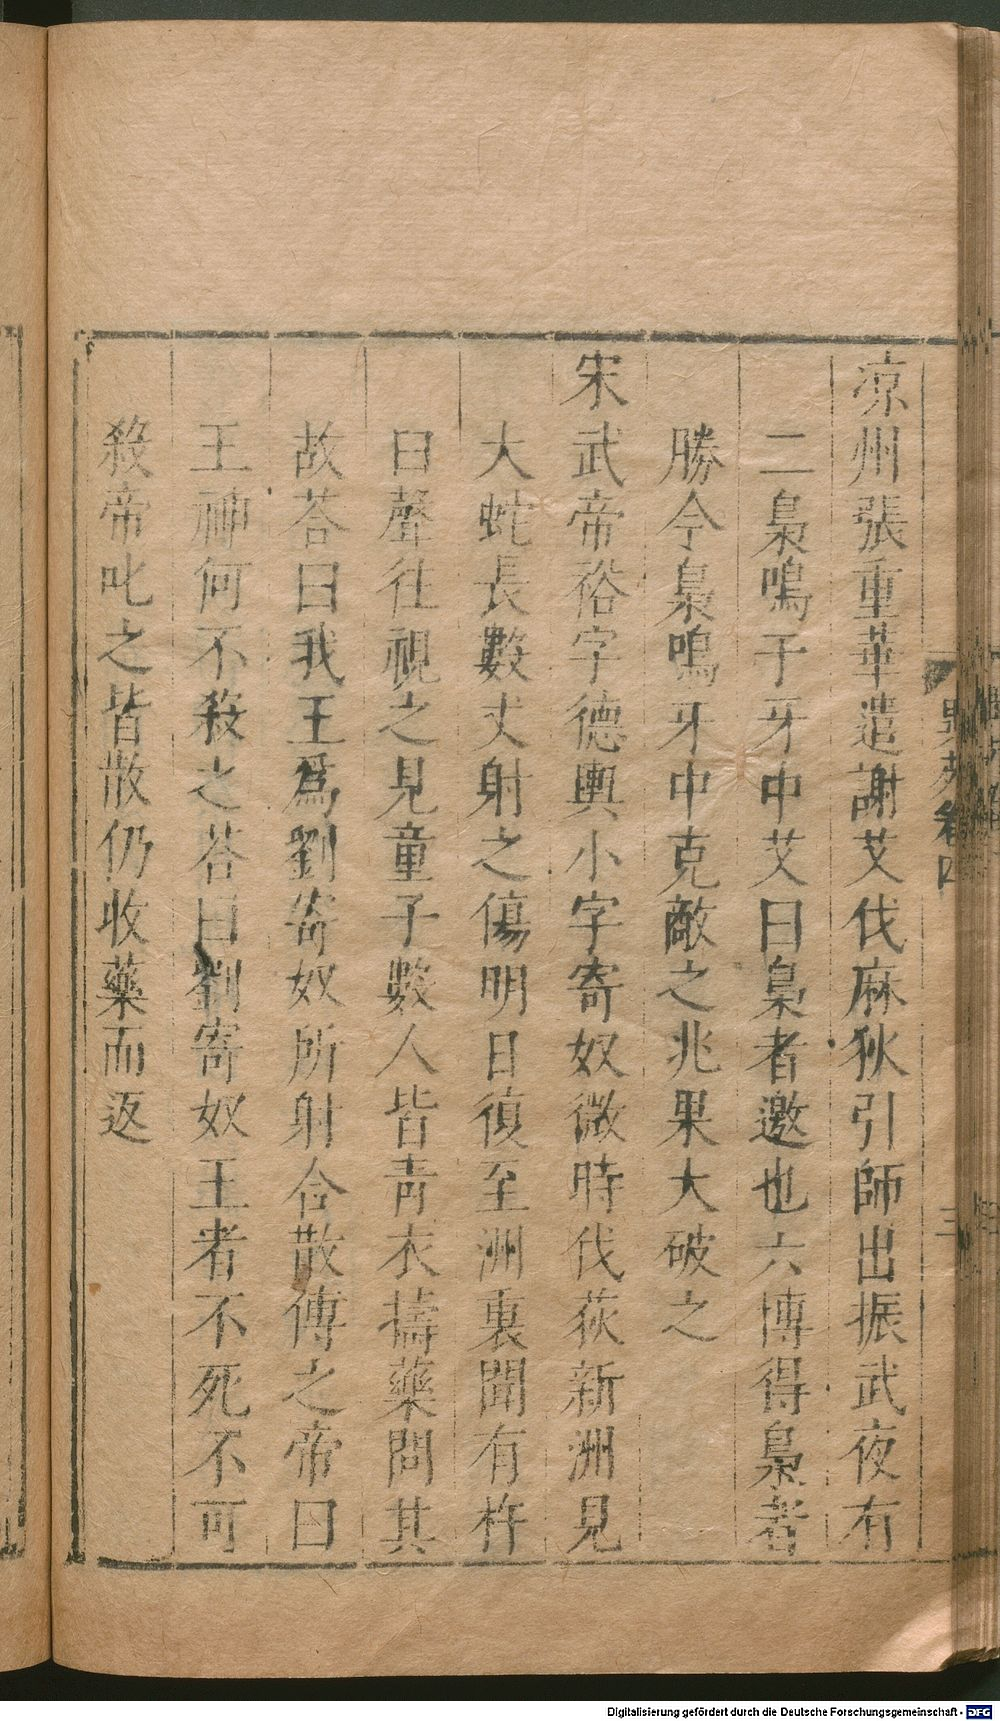 涼州張重華遣謝艾伐麻狄引師出振武夜有
二梟鳴于牙中艾曰梟者邀也六博得梟者
勝今梟鳴牙中克敵之兆果大破之
宋武帝裕字德輿小字寄奴微時伐荻新洲見
大蛇長數丈射之傷明日復至洲裏聞有杵
臼聲往視之見童子數人皆青衣擣藥問其
故荅曰我王爲劉寄奴所射合散傅之帝曰
王神何不殺之荅曰劉寄奴王者不死不可
殺帝叱之皆散仍收藥而返
異苑卷四
三
Digitalisierung gefördert durch die Deutsche Forschungsgemeinschaft - DFG